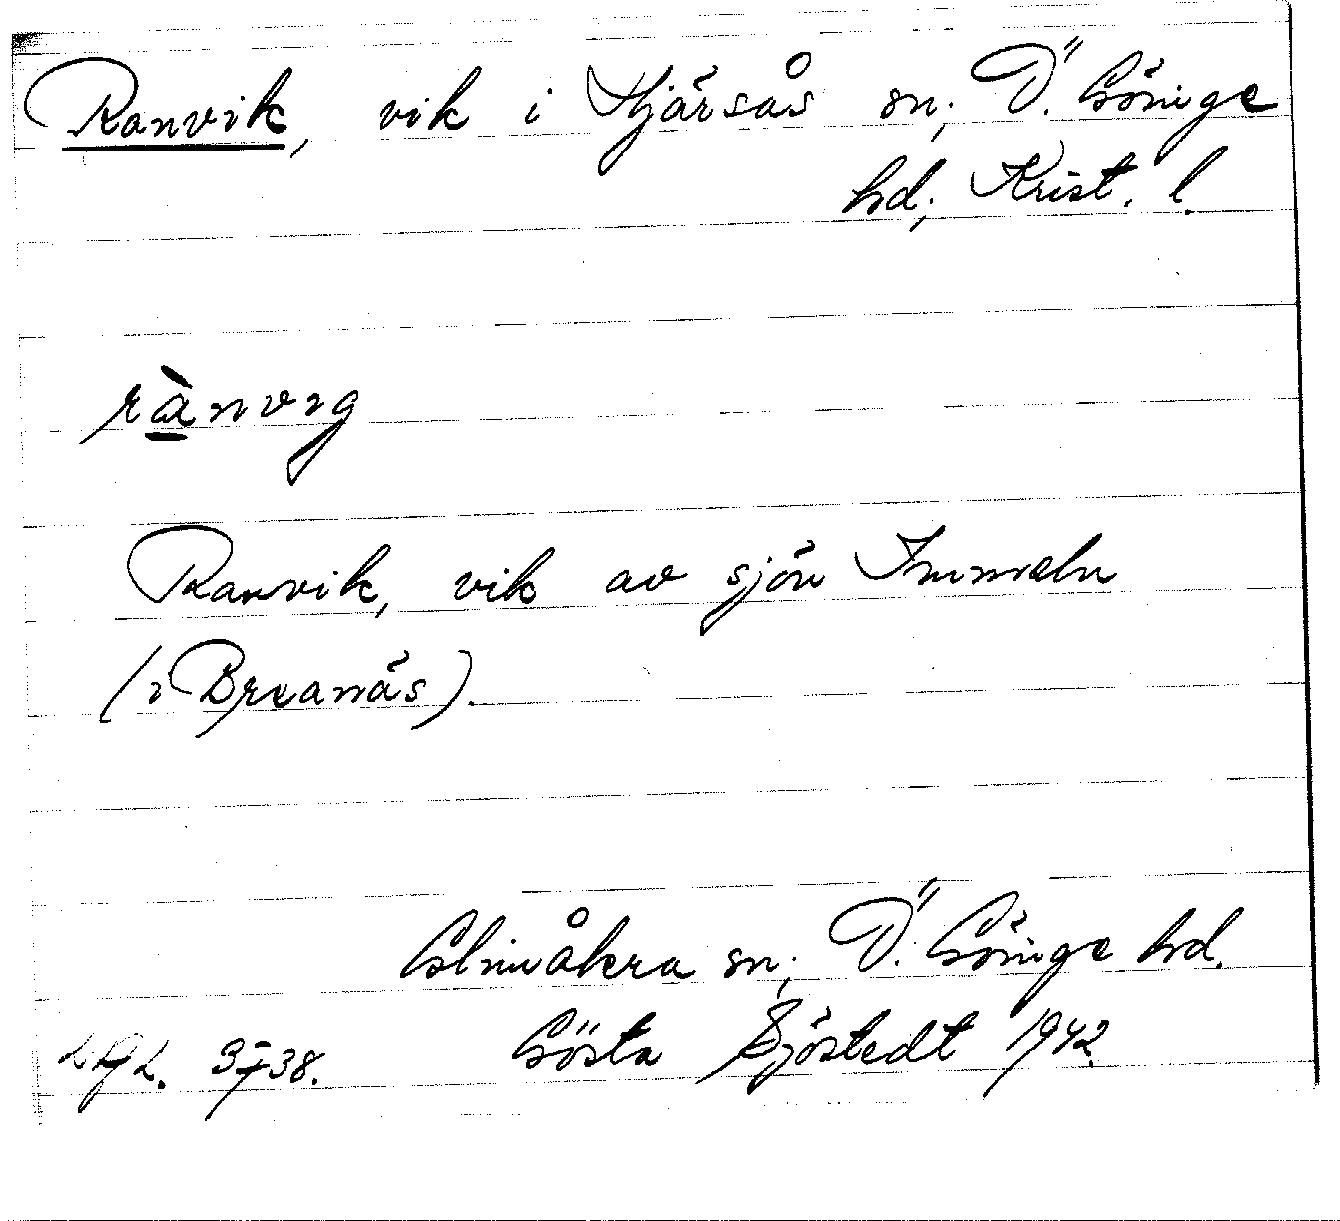 Ranvik, vik i Hjärsås sn; Ö. Göinge
hd; Krist. l.
rànvig
Ranvik, vik av sjön Immeln
(i Breanäs).
Glimåkra sn; Ö. Göinge hd.
Gösta Sjöstedt 1942.